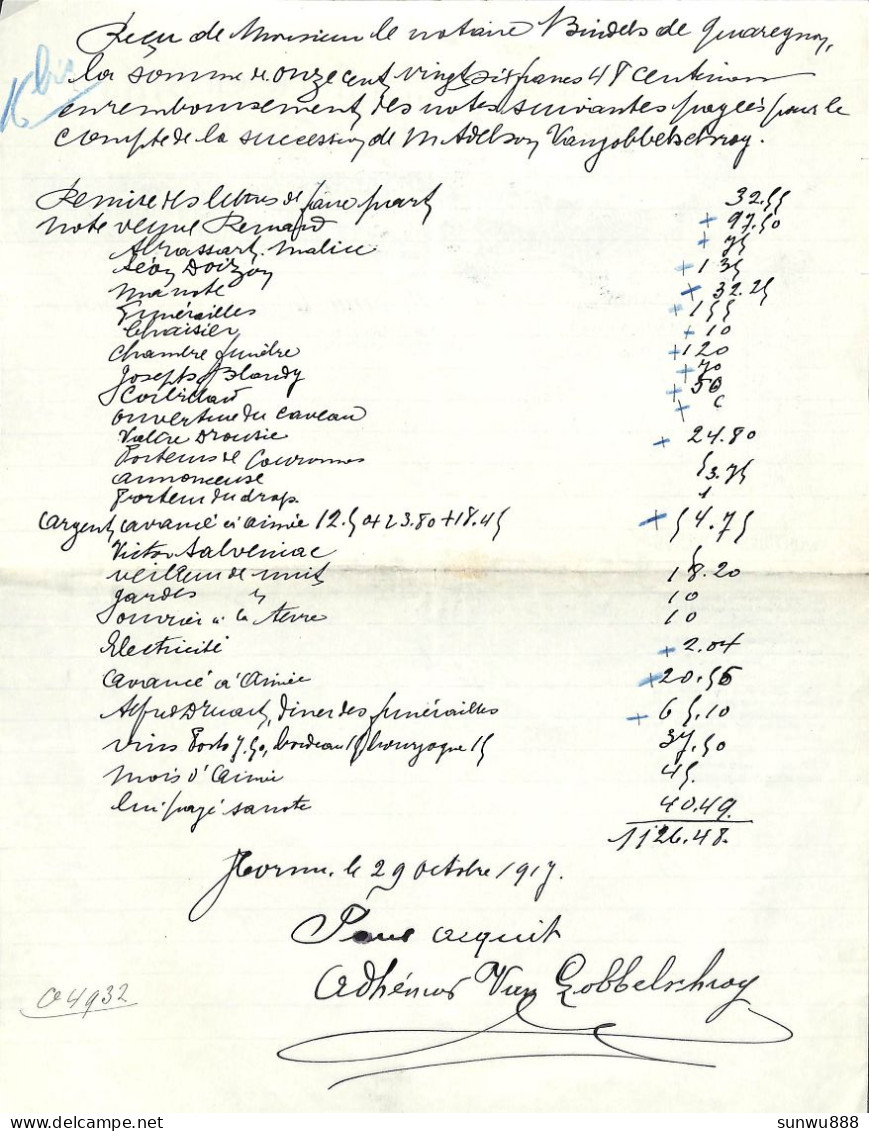 Reçu de Monsieur le notaire Bindels de Quaregnon,
K bis
la somme de onze cent vingt six francs 48 centimes
en remboursement des notes suivantes payées pour le
compte de la succession de M Adelson Van Gobbelschroy.
Remise des lettres de faire part 32.55
note veuve Renard + 97.50
Abrassart Malice + 75
Léon Doizon + 135
ma note + 32.25
Funérailles + 155
Chaisier + 10
Chambre funèbre + 120
Joseph Blandy + 70
Corbillard + 50
ouverture du caveau + 6
Valère Drousie + 24.80
Porteurs de Couronnes 5
annonceuse 3.75
Porteur du drap 1
argent avancé à Aimée 12.50 + 23.80 + 18.45 + 54.75
Victor 5
veilleur de nuit 18.20
gardes 10
ouvrier à la terre 10
Electricité + 2.04
avancé à Aimée + 20.55
Alfred Druart, diner des funérailles + 65.10
vins Porto 7.50, bordeau 15 bourgogne 15 37.50
mois d'Aimée 45.
lui payé sa note 40.49
1126.48.
Hornu, le 29 octobre 1917.
Pour acquit
Adhémar Van Gobbelschroy
04932
sunwu888